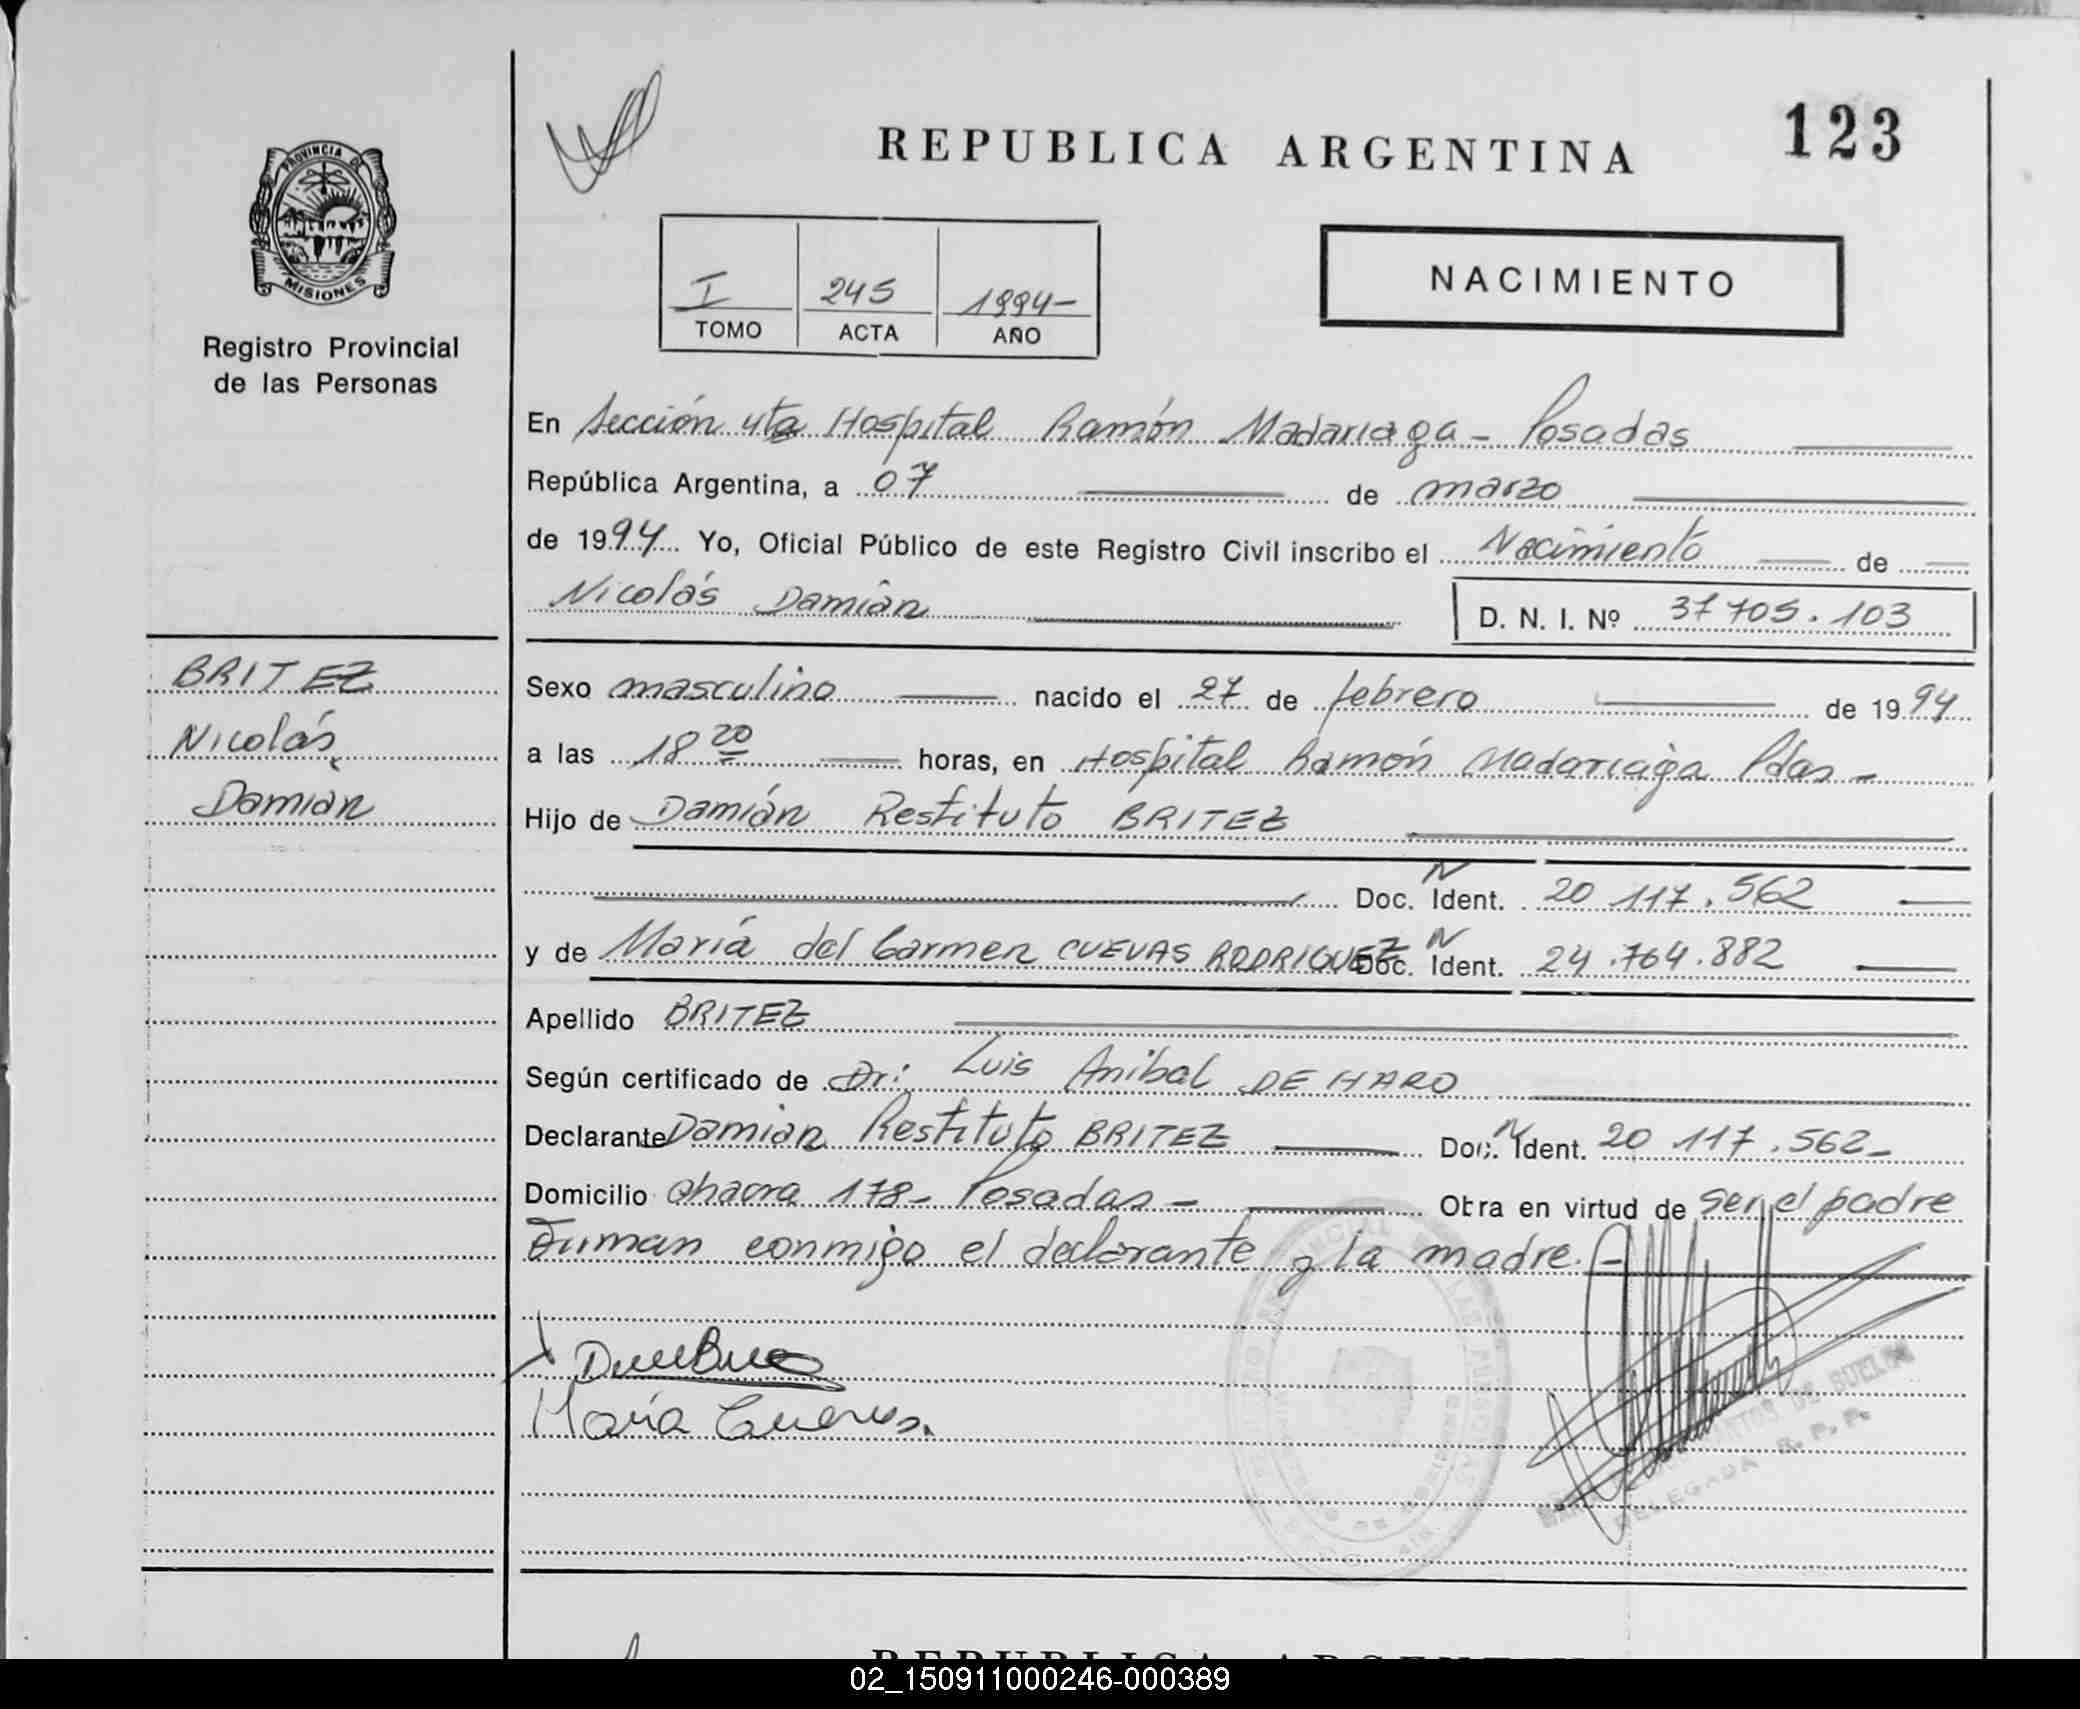 123
REPUBLICA ARGENTINA
PROVINCIA DE
MISIONES
Registro Provincial
de las Personas
I 245 1994-
TOMO ACTA AÑO
NACIMIENTO
En Sección 4ta Hospital Ramón Madariaga - Posadas
República Argentina, a 07 de marzo
de 1994 Yo, Oficial Público de este Registro Civil inscribo el Nacimiento de
Nicolás Damián
D. N. I. Nº 37 705.103
BRITEZ
Nicolás
Damián
Sexo masculino nacido el 27 de febrero de 1994
a las 18 20 horas, en Hospital Ramón Madariaga Pdas -
Hijo de Damián Restituto BRITEZ
Doc. N Ident. 20 117.562
y de María del Carmen CUEVAS RODRIGUEZ Doc. N Ident. 24.764.882
Apellido BRITEZ
Según certificado de Dr: Luis Anibal DE HARO
Declarante Damián Restituto BRITEZ Doc. N Ident. 20 117.562-
Domicilio chacra 178- Posadas - Obra en virtud de ser el padre
Firman conmigo el declarante y la madre. -
María Cuevas.
DE SUELOS
DELEGADA R. P. P.
REPUBLICA ARGENTINA
02_150911000246-000389